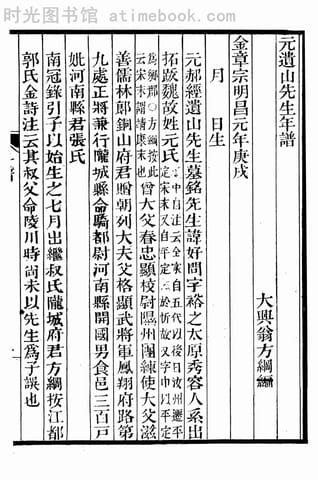 时光图书馆 atimebook.com
元遺山先生年譜
大興翁方綱編
金章宗明昌元年庚戌
月 日生
元郝經遺山先生墓銘先生諱好問字裕之太原秀容人系出
拓跋魏故姓元氏 中自注云 自五代以後自汝州遷平
定宋末又自平定 於忻故又 以平定
方綱按此
云宋末
也曾大父春忠顯校尉隰州團練使大父滋
善儒林郎銅山府君贈朝列大夫父格顯武將軍鳳翔府路第
九處正將兼行隴城縣令騎都尉河南縣開國男食邑三百戶
妣河南縣君張氏
南冠錄引子以始生之七月出繼叔氏隴城府君方綱按江都
郭氏金詩注云其叔父命陵川時尚未以先生爲子誤也